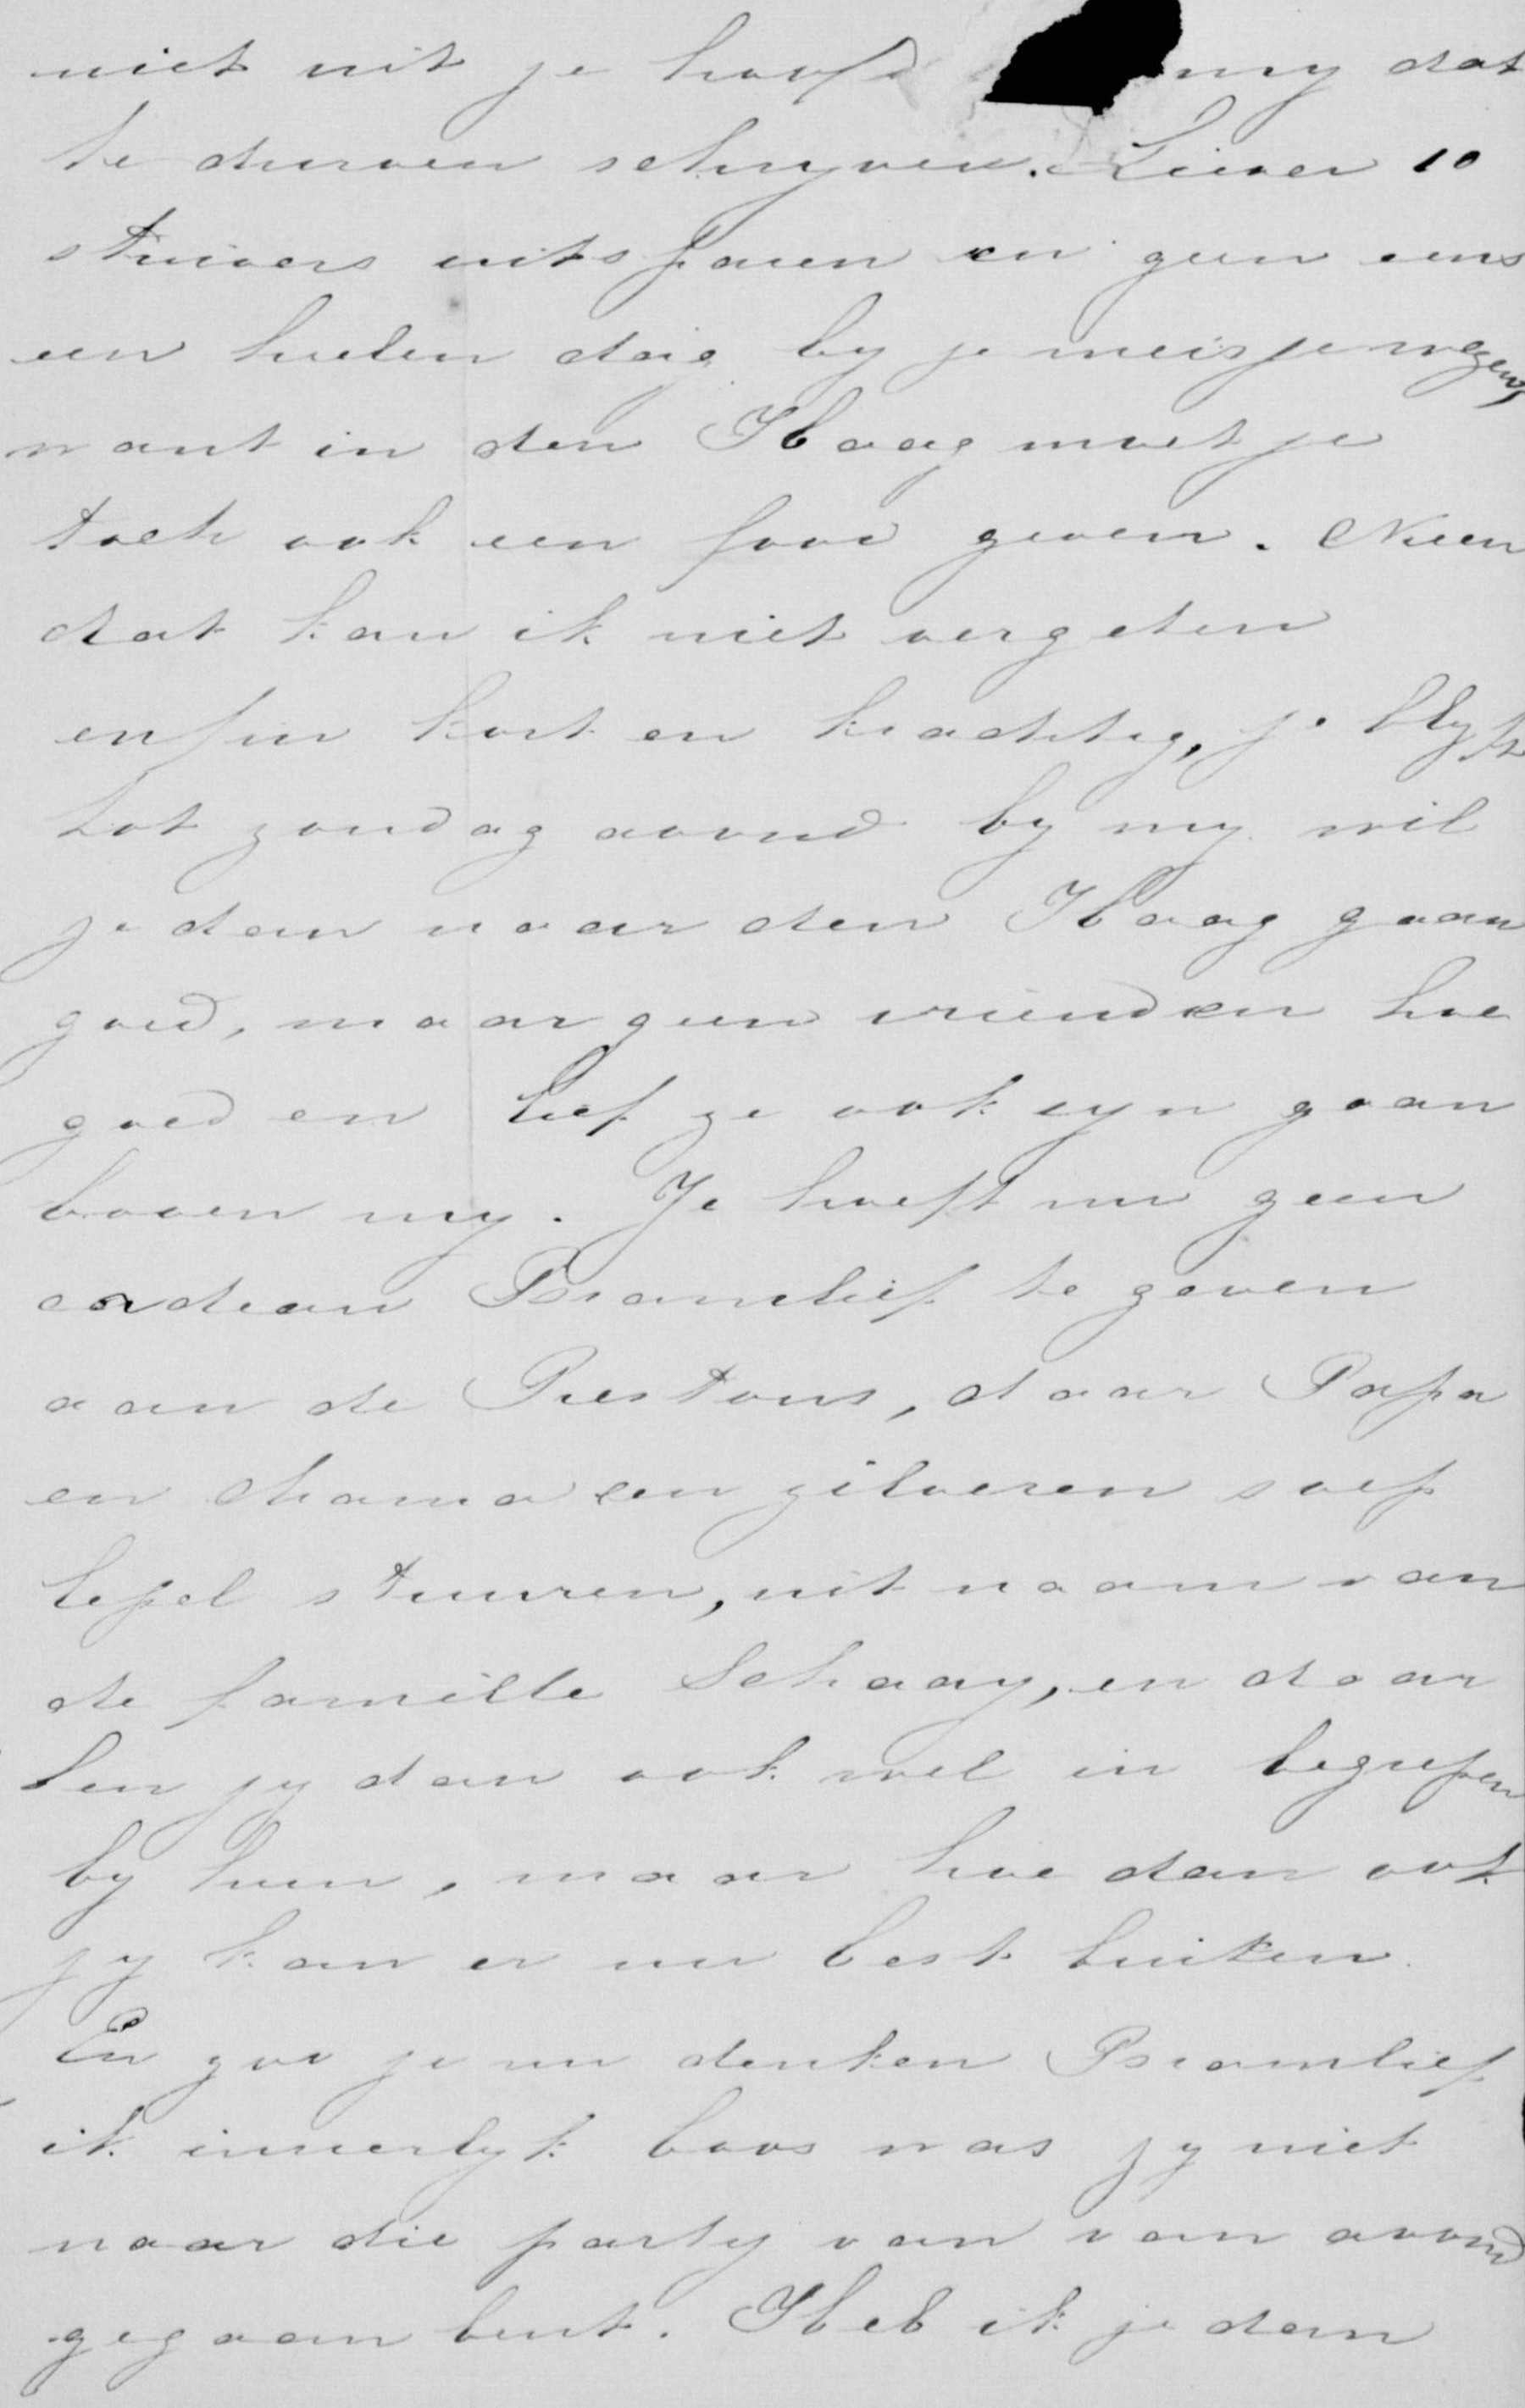 niet uit je hoofd my dat
te durven schryven. Liever 10
stuivers uitsparen en geen eens
een heelen dag by je meisje wezen,
want in den Haag moet je
toch ook een fooi geven. Neen
dat kan ik niet vergeten
enfin kort en krachtig, je blyft
tot zondag avond by my wil
je dan naar den Haag gaan
goed, maar geen vrienden hoe
goed en lief ze ook zyn gaan
boven my. Je hoeft nu geen
cadeau Bramlief te geven
aan de Prestons, daar Papa
en Mama een zilveren soep
lepel sturen, uit naam van
de familie Schaay, en daar
ben jy dan ook wel in begrepen
by hun, maar hoe dan ook
jy kan er nu best buiten.
En zou je nu denken Bramlief
ik innerlyk boos was jy niet
naar die party van van avond
gegaan bent. Heb ik je dan